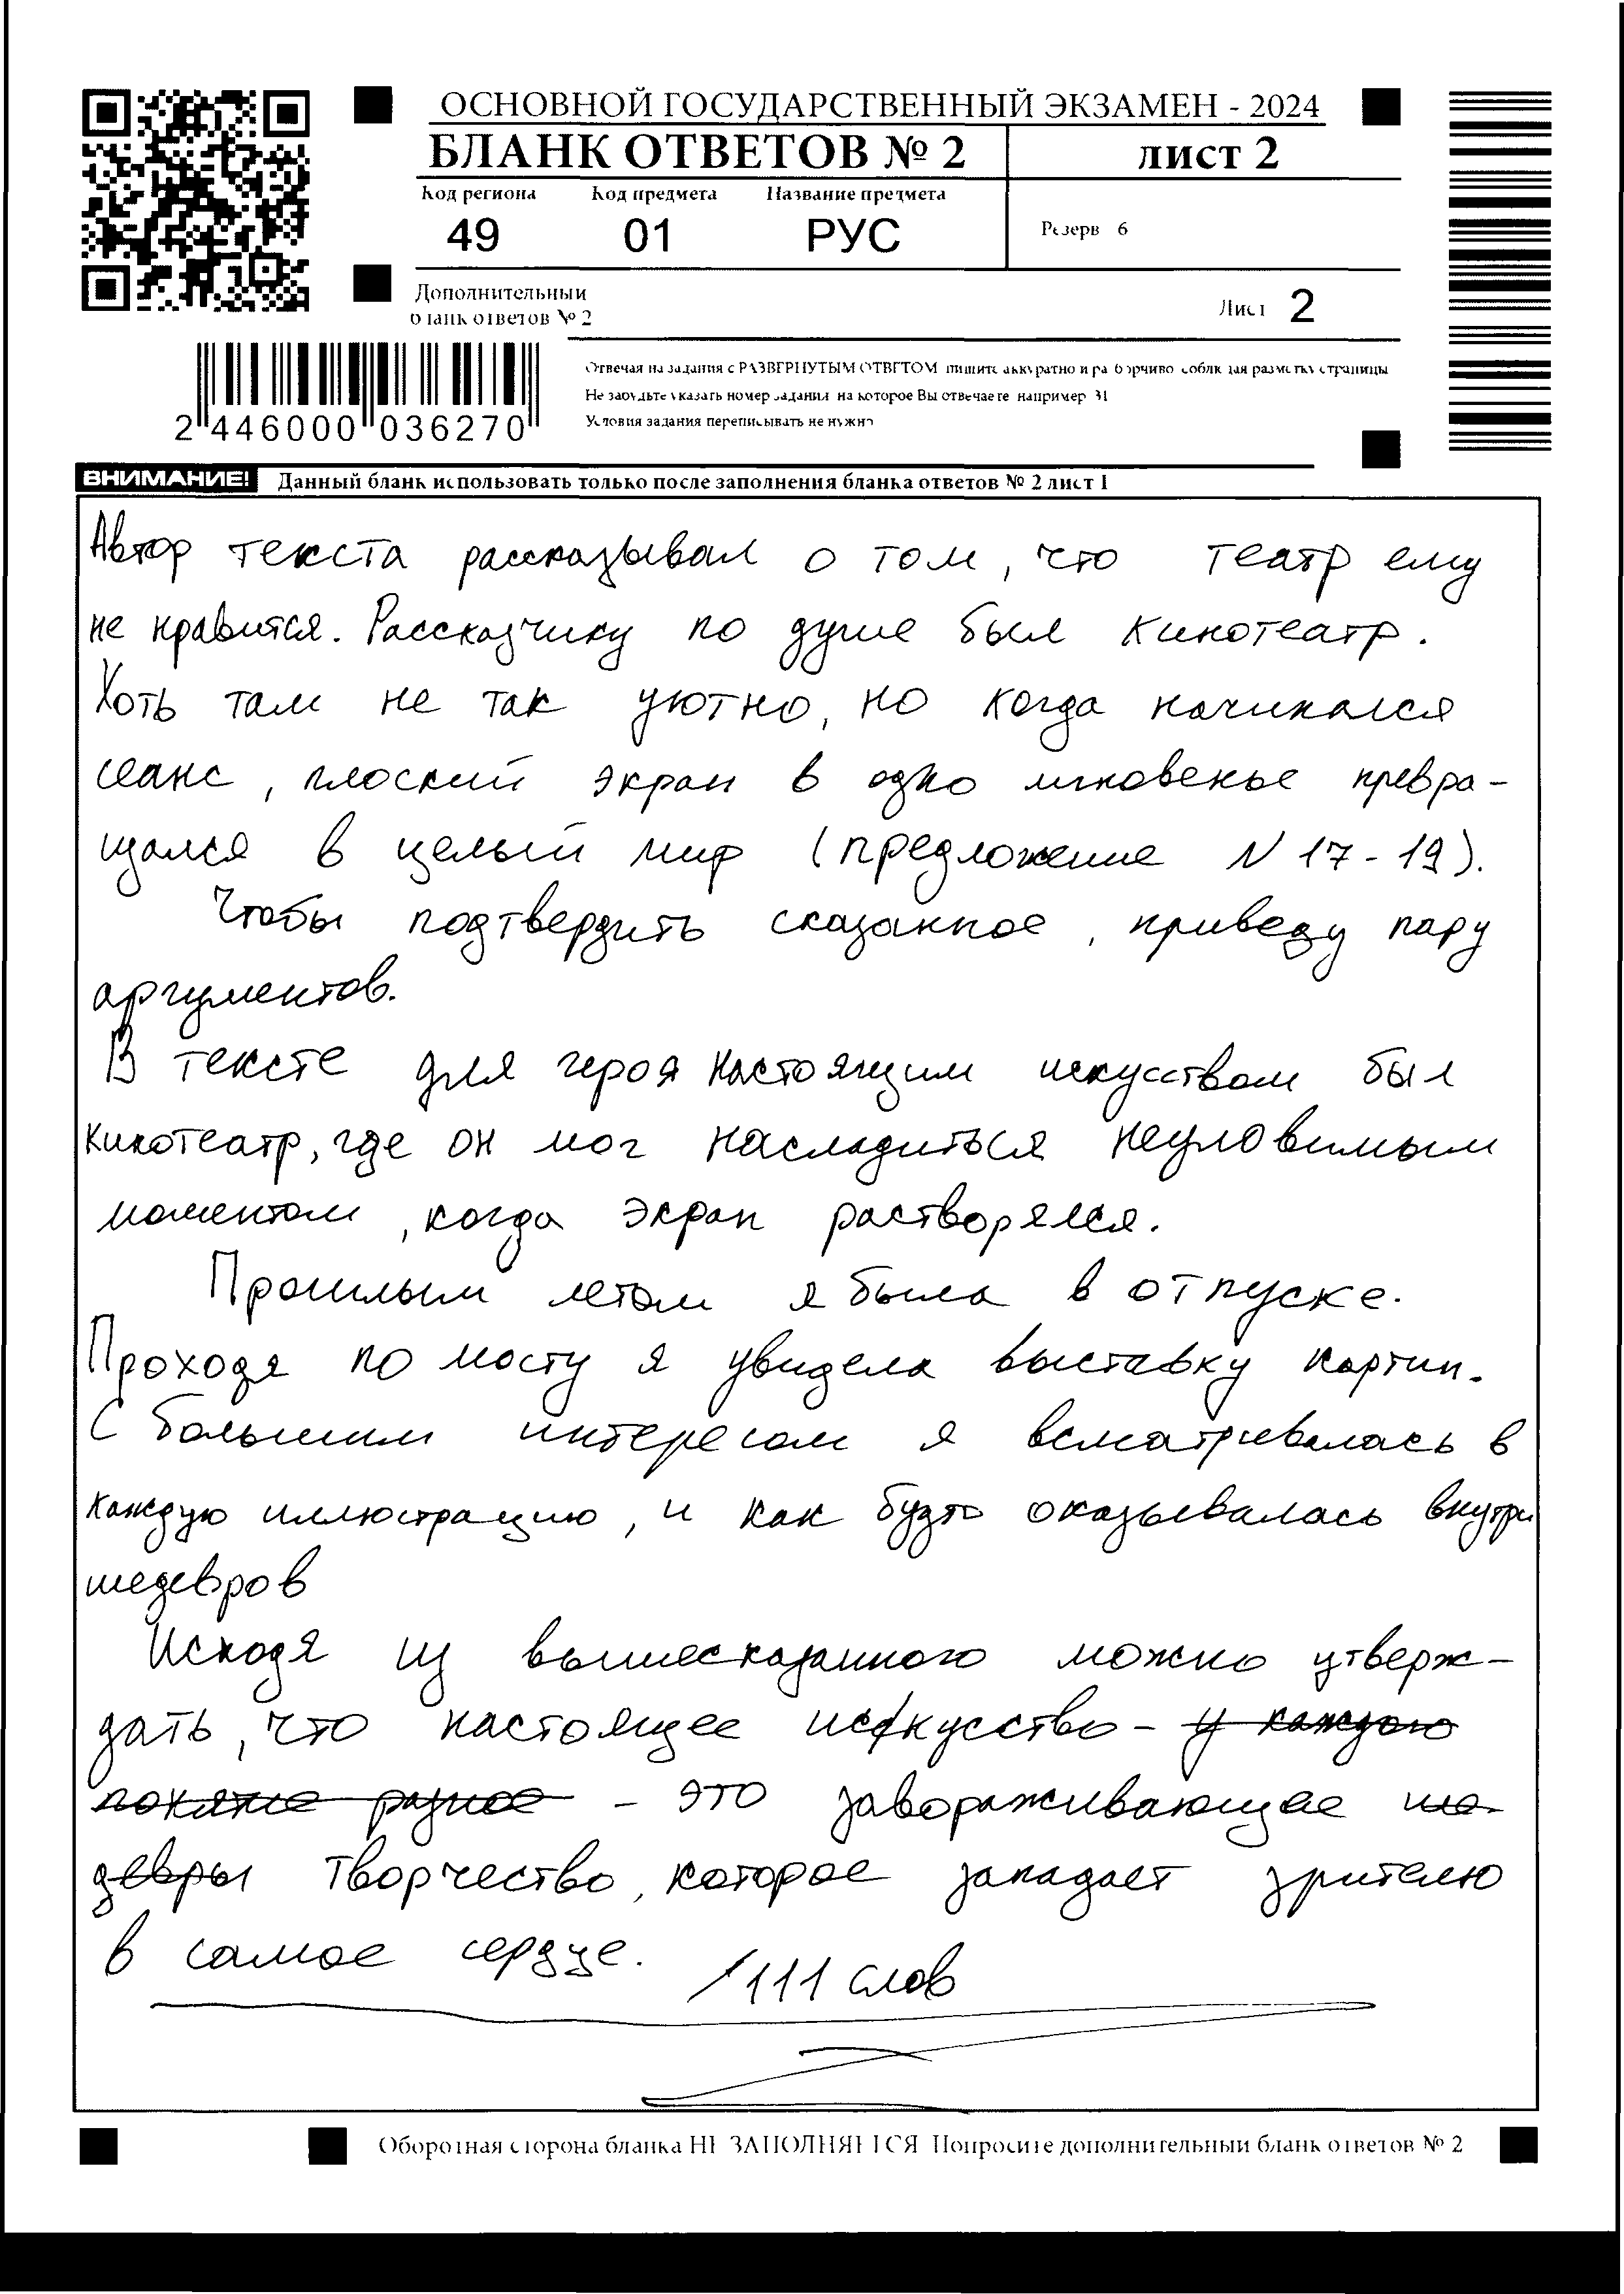 ОСНОВНОЙ ГОСУДАРСТВЕННЫЙ ЭКЗАМЕН - 2024
БЛАНК ОТВЕТОВ № 2
лист 2
Код региона Код предмета Название предмета
49 01 РУС
Резерв 6
Дополнительный
бланк ответов № 2
Лист 2
2 446000 036270
Отвечая на задания с РАЗВЕРНУТЫМ ОТВЕТОМ пишите аккуратно и разборчиво соблюдая разметку страницы
Не забудьте указать номер задания на которое Вы отвечаете например 31
Условия задания переписывать не нужно
ВНИМАНИЕ! Данный бланк использовать только после заполнения бланка ответов № 2 лист 1
Автор текста рассказывал о том, что театр ему
не нравится. Рассказчику по душе был кинотеатр.
Хоть там не так уютно, но когда начинался
сеанс, плоский экран в одно мгновенье превра-
щался в целый мир (предложение N 17-19).
Чтобы подтвердить сказанное, приведу пару
аргументов.
В тексте для героя настоящим искусством был
кинотеатр, где он мог насладиться неуловимым
моментом, когда экран растворялся.
Прошлым летом я была в отпуске.
Проходя по мосту я увидела выставку картин.
С большим интересом я всматривалась в
каждую иллюстрацию, и как будто оказывалась внутри
шедевров
Исходя из вышесказанного можно утверж-
дать, что настоящее искусство - у каждого
понятие разное - это завораживающее ше-
девры творчество, которое западает зрителю
в самое сердце.
/111 слов
Оборотная сторона бланка НЕ ЗАПОЛНЯЕТСЯ Попросите дополнительный бланк ответов № 2